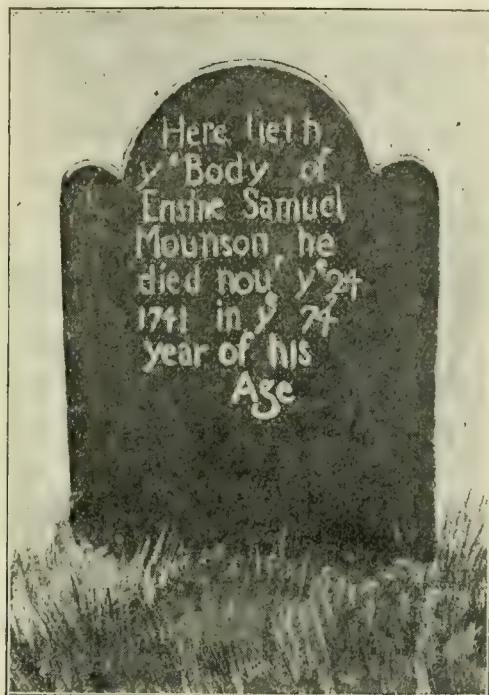 Here lieth
yᵉ Body of
Ensine Samuel
Mounson he
died nouʳ yᵉ 24
1741 in yᵉ 74
year of his
Age